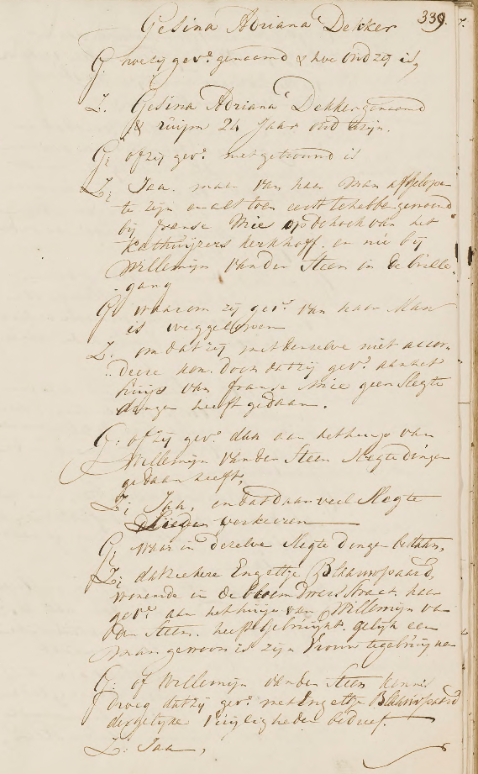 339.
Gesina Adriana Dekker
G. hoe zij gev:e genaamd & hoe oud zij is,
Z. Gesina Adriana Dekker genaamd
& ruijm 24 Jaar oud te zijn.
G. of zij gev:e niet getrouwd is
Z. Jaa. maar van haar man afgelopen
te zijn en als toen eerst te hebben gewoond
bij franse Mie op de hoek van het
Kathuijsers kerkhoff. en nu bij
Willemijn van der Steen in de brille
gang
G. waarom zij gev:e van haar Man
is weggelopen
Z. om dat zij met denselve niet accor
deere kon doen dat zij gev:e aan het
huijs van franse Mie geen slegte
dingen heeft gedaan.
G. of zij gev:e dan aan het huijs van
Willemijn van der Steen slegte dingen
gedaan heeft,
Z. Jaa, en
veel slegte
verkeeren
G. waar in deselve slegte dinge bestaan,
Z. dat zeekere Engeltje Blaauwpaard,
wonende in de bloem dwars straat, haar
gev:e aan het huijs van Willemijn va
der Steen. heeft gebruijkt. gelijk een
man gewoon is zijn Vrouw te gebruijken
G. of Willemijn van der Steen kennis
droeg dat zij gev:e met Engeltje Blaauwpaard
diergelijke vuijligheden bedreef.
Z. Jaa,